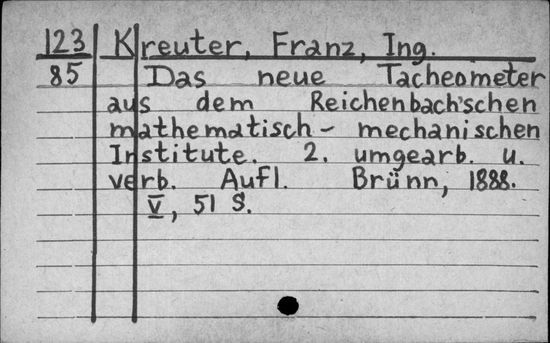 123 Kreuter, Franz, Ing.
85 Das neue Tacheometer
aus dem Reichenbach'schen
mathematisch- mechanischen
Institute. 2. umgearb. u.
verb. Aufl. Brünn, 1888.
V, 51 S.